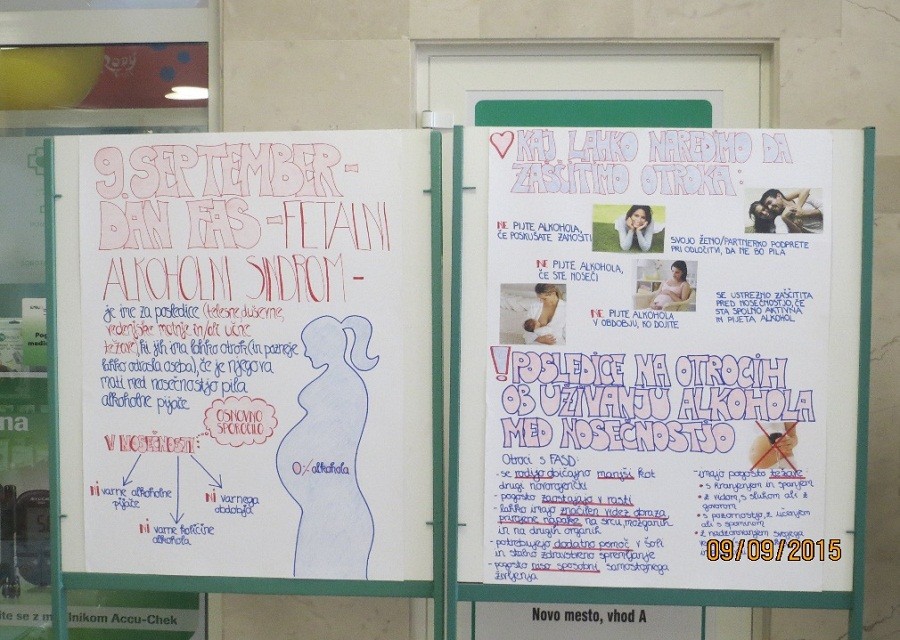 9. SEPTEMBER-
DAN FAS - FETALNI
ALKOHOLNI SINDROM -
je ime za posledice (telesne, duševne,
vedenjske motnje in/ali učne
težave), ki jih ima lahko otrok (in pozneje
lahko odrasla oseba), če je njegova
mati med nosečnostjo pila
alkoholne pijače
OSNOVNO
SPOROČILO
V NOSEČNOSTI:
NI varne alkoholne
pijače
NI varne količine
alkohola
NI varnega
obdobja
0% alkohola
KAJ LAHKO NAREDIMO DA
ZAŠČITIMO OTROKA:
NE PIJTE ALKOHOLA,
ČE POSKUŠATE ZANOSITI
SVOJO ŽENO/PARTNERKO PODPRETE
PRI ODLOČITVI, DA NE BO PILA
NE PIJTE ALKOHOLA,
ČE STE NOSEČI
NE PIJTE ALKOHOLA
V OBDOBJU, KO DOJITE
SE USTREZNO ZAŠČITITA
PRED NOSEČNOSTJO, ČE
STA SPOLNO AKTIVNA
IN PIJETA ALKOHOL
! POSLEDICE NA OTROCIH
OB UŽIVANJU ALKOHOLA
MED NOSEČNOSTJO
Otroci s FASD:
- se rodijo običajno manjši kot
drugi novorojenčki
- pogosto zaostajajo v rasti
- lahko imajo značilen videz obraza,
prirojene napake na srcu, možganih
in na drugih organih
- potrebujejo dodatno pomoč v šoli
in stalno zdravstveno spremljanje
- pogosto niso sposobni samostojnega
življenja
- imajo pogosto težave:
• s hranjenjem in spanjem
• z vidom, s sluhom ali z
govorom
• s pozornostjo, z učenjem
ali s spominom
• z nadzorovanjem svojega
09/09/2015
ite se z merilnikom Accu-Chek
Novo mesto, vhod A